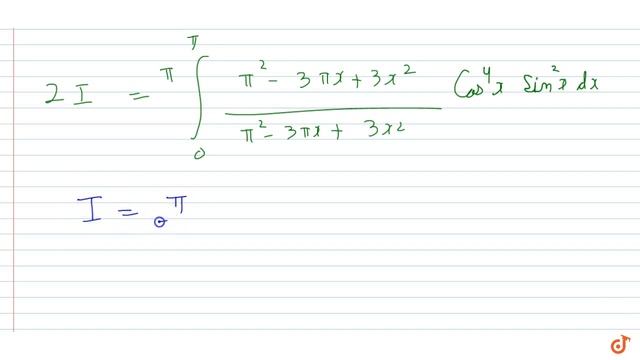 2I = π ∫₀^π (π² - 3πx + 3x²) / (π² - 3πx + 3x²) Cos⁴x Sin²x dx
I = π